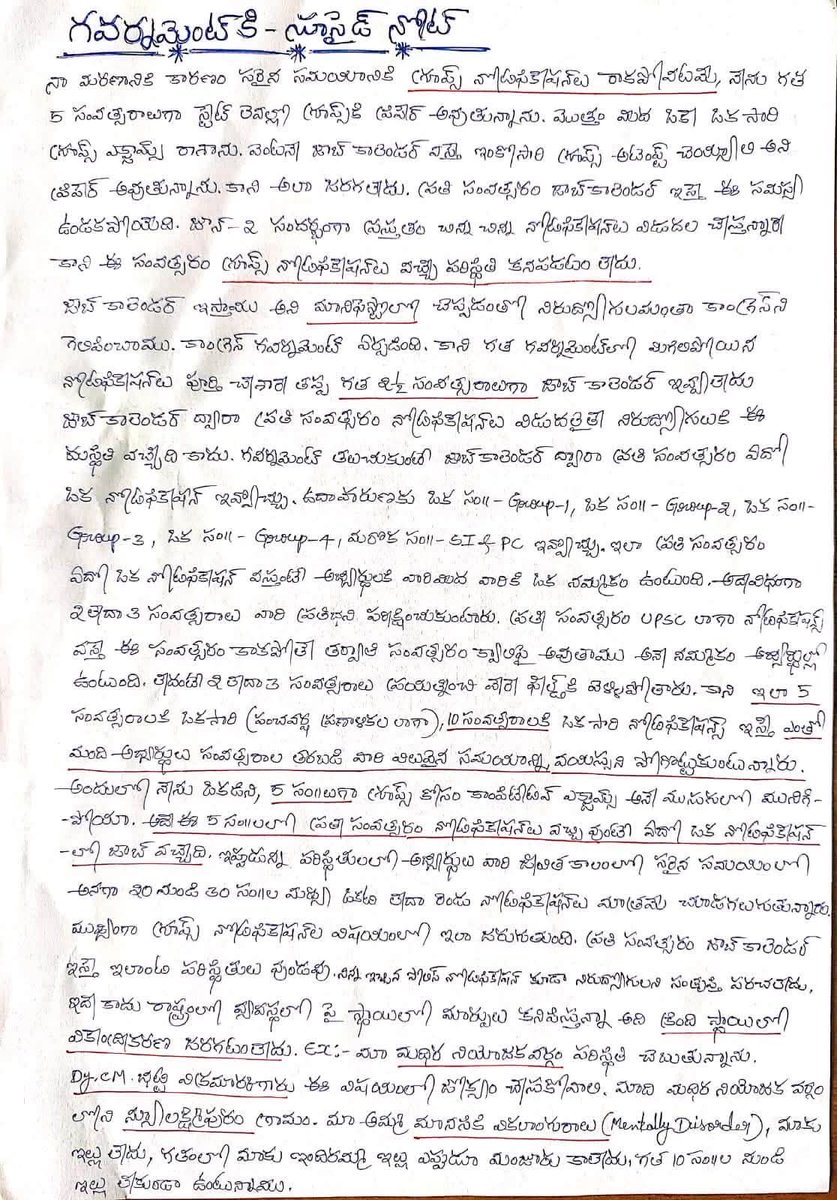 గవర్నమెంట్ కి - సూసైడ్ నోట్
నా మరణానికి కారణం సరైన సమయానికి గ్రూప్స్ నోటిఫికేషన్‌లు రాకపోవటమే, నేను గత
5 సంవత్సరాలుగా స్టేట్ లెవల్లో గ్రూప్స్‌కి ప్రిపేర్ అవుతున్నాను. మొత్తం మీద ఒకే ఒకసారి
గ్రూప్స్ ఎక్జామ్స్ రాశాను. వెంటనే జాబ్ కాలెండర్ వస్తే ఇంకోసారి గ్రూప్స్ అటెంప్ట్ చెయ్యాలి అని
ప్రిపేర్ అవుతున్నాను. కాని అలా జరగలేదు. ప్రతి సంవత్సరం జాబ్ కాలెండర్ ఇస్తే ఈ సమస్య
ఉండకపోయేది. జూన్-2 సందర్భంగా ప్రస్తుతం చిన్న చిన్న నోటిఫికేషన్‌లు విడుదల చేస్తున్నారు
కాని ఈ సంవత్సరం గ్రూప్స్ నోటిఫికేషన్‌లు వచ్చే పరిస్థితి కనపడటం లేదు.
జాబ్ కాలెండర్ ఇస్తాము అని మానిఫెస్టోలో చెప్పడంతో నిరుద్యోగులమంతా కాంగ్రెస్‌ని
గెలిపించాము. కాంగ్రెస్ గవర్నమెంట్ ఏర్పడింది. కాని గత గవర్నమెంట్‌లో మిగిలిపోయిన
నోటిఫికేషన్‌లు పూర్తి చేశారే తప్ప గత 2½ సంవత్సరాలుగా జాబ్ కాలెండర్ ఇవ్వలేదు
జాబ్ కాలెండర్ ద్వారా ప్రతి సంవత్సరం నోటిఫికేషన్‌లు విడుదలైతే నిరుద్యోగులకి ఈ
దుస్థితి వచ్చేది కాదు. గవర్నమెంట్ తలచుకుంటే జాబ్ కాలెండర్ ద్వారా ప్రతి సంవత్సరం ఏదో
ఒక నోటిఫికేషన్ ఇవ్వొచ్చు. ఉదాహరుణకు ఒక సం॥ - Group-1, ఒక సం॥ - Group-2, ఒక సం॥ -
Group-3, ఒక సం॥ - Group-4, మరొక సం॥ - SI & PC ఇవ్వొచ్చు. ఇలా ప్రతి సంవత్సరం
ఏదో ఒక నోటిఫికేషన్ వస్తుంటే అభ్యర్థులకి వారిమీద వారికి ఒక నమ్మకం ఉంటుంది. అదేవిధంగా
2 లేదా 3 సంవత్సరాలు వారి ప్రతిభని పరీక్షించుకుంటారు. ప్రతి సంవత్సరం UPSC లాగా నోటిఫికేషన్స్
వస్తే ఈ సంవత్సరం కాకపోతే తర్వాతి సంవత్సరం క్వాలిఫై అవుతాము అనే నమ్మకం అభ్యర్థుల్లో
ఉంటుంది. లేదంటే 2 లేదా 3 సంవత్సరాలు ప్రయత్నించి వేరే ఫీల్డ్‌కి వెళ్ళిపోతారు. కాని ఇలా 5
సంవత్సరాలకి ఒకసారి (పంచవర్ష ప్రణాళికల లాగా), 10 సంవత్సరాలకి ఒకసారి నోటిఫికేషన్స్ ఇస్తే ఎంతో
మంది అభ్యర్థులు సంవత్సరాల తరబడి వారి విలువైన సమయాన్ని, వయస్సుని పోగొట్టుకుంటున్నారు.
అందులో నేను ఒకడిని, 5 సం॥లుగా గ్రూప్స్ కోసం కాంపిటేటివ్ ఎక్జామ్స్ అనే ముసుగులో మునిగి-
-పోయా. అదే ఈ 5 సం॥లలో ప్రతి సంవత్సరం నోటిఫికేషన్‌లు వచ్చి వుంటే ఏదో ఒక నోటిఫికేషన్
-లో జాబ్ వచ్చేది. ఇప్పుడున్న పరిస్థితులలో అభ్యర్థులు వారి జీవిత కాలంలో సరైన సమయంలో
అనగా 20 నుండి 30 సం॥ల మధ్య ఒకటి లేదా రెండు నోటిఫికేషన్‌లు మాత్రమే చూడగలుగుతున్నారు.
ముఖ్యంగా గ్రూప్స్ నోటిఫికేషన్‌ల విషయంలో ఇలా జరుగుతుంది. ప్రతి సంవత్సరం జాబ్ కాలెండర్
ఇస్తే ఇలాంటి పరిస్థితులు వుండవు. నిన్న ఇచ్చిన పోలీస్ నోటిఫికేషన్ కూడా నిరుద్యోగులని సంతృప్తి పరచలేదు,
ఇదే కాదు రాష్ట్రంలో వ్యవస్థలో పై స్థాయిలో మార్పులు కనిపిస్తున్నా అది క్రింది స్థాయిలో
వికేంద్రీకరణ జరగటంలేదు. Ex:- మా మధిర నియోజకవర్గం పరిస్థితి చెబుతున్నాను.
Dy.CM. భట్టి విక్రమార్కగారు ఈ విషయంలో జోక్యం చేసుకోవాలి. మాది మధిర నియోజక వర్గం
లోని స్నానలక్ష్మీపురం గ్రామం. మా అమ్మ మానసిక వికలాంగురాలు (Mentally Disorder), మాకు
ఇల్లు లేదు, గతంలో మాకు ఇందిరమ్మ ఇల్లు ఎప్పుడూ మంజూరు కాలేదు, గత 10 సం॥ల నుండి
ఇల్లు లేకుండా ఉంటున్నాము.